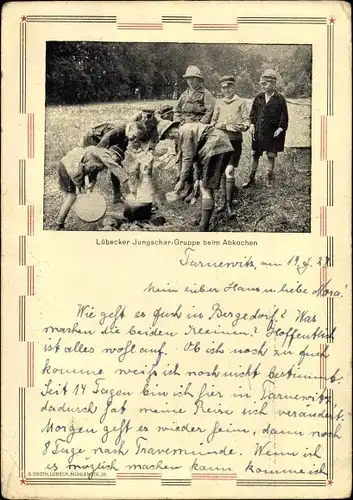 Lübecker Jungschar-Gruppe beim Abkochen
Tarnewitz, am 19. 7. 27.
Mein lieber Hans u. liebe Mora!
Wie geht es Euch in Bergedorf? Was
machen die beiden Kleinen? Hoffentlich
ist alles wohl auf. Ob ich noch zu Euch
komme weiß ich noch nicht bestimmt.
Seit 14 Tagen bin ich hier in Tarnewitz,
dadurch hat meine Reise sich verändert.
Morgen geht es wieder heim, dann noch
8 Tage nach Travemünde. Wenn ich
es möglich machen kann komme ich
G. GROTH, LÜBECK, MÜHLENSTR.